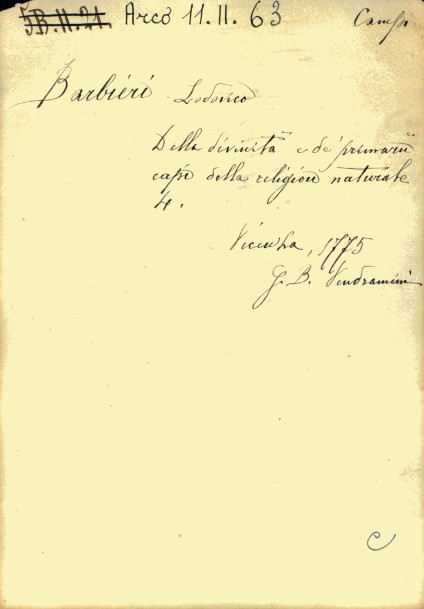 5B.II.21. Arco 11.II.63
Barbieri Lodovico
Della divinità e de' primarii
capi della religion naturale
4.
Vicenza, 1775
G. B. Vendramini
C